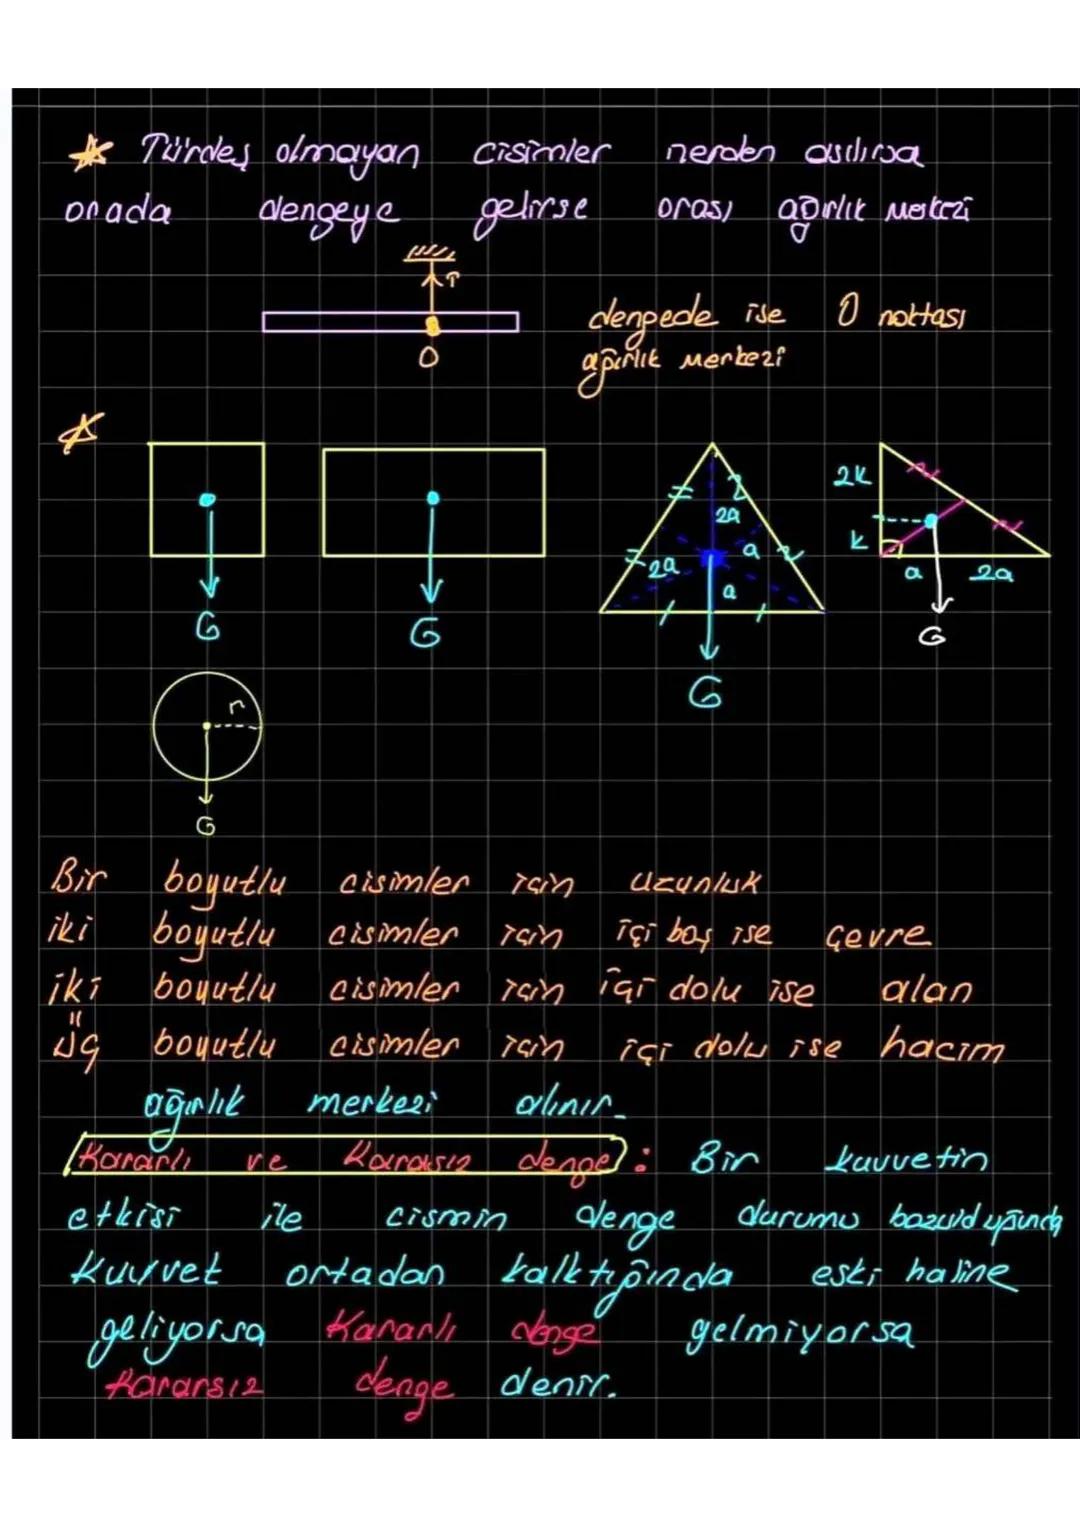 Türdeş olmayan cisimler nerden asılırsa
orada dengeye gelirse orası ağırlık merkezi
T
O
dengede ise O noktası
ağırlık merkezi
G
G
2a
2a
a
a
G
2k
k
a
2a
G
r
G
Bir boyutlu cisimler için uzunluk
iki boyutlu cisimler için içi boş ise çevre
iki boyutlu cisimler için içi dolu ise alan
Üç boyutlu cisimler için içi dolu ise hacim
ağırlık merkezi alınır.
Kararlı ve Kararsız denge: Bir kuvvetin
etkisi ile cismin denge durumu bozulduğunda
Kuvvet ortadan kalktığında eski haline
geliyorsa Kararlı denge gelmiyorsa
Kararsız denge denir.